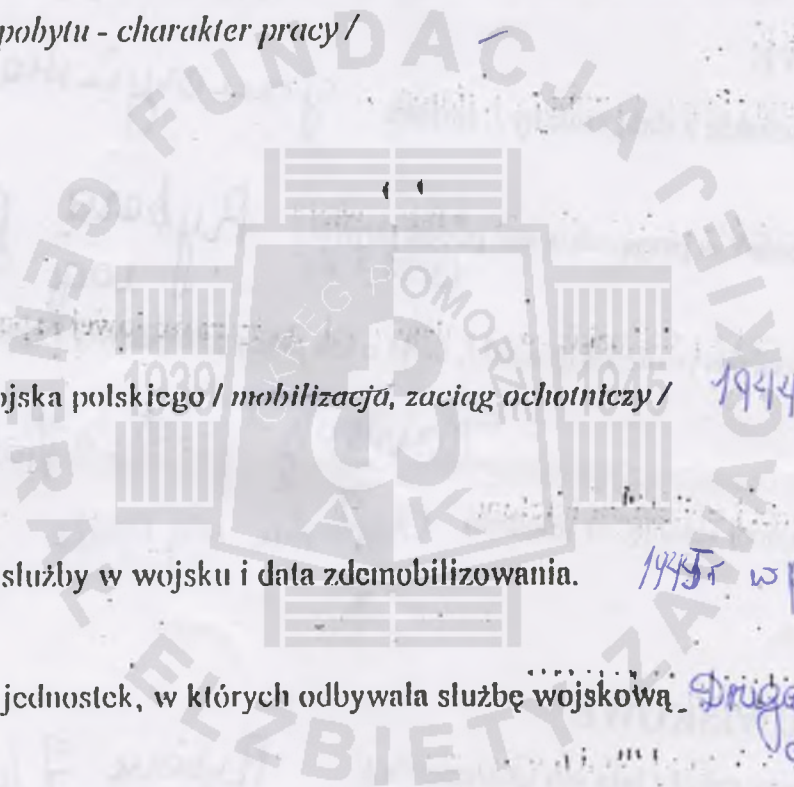 pobytu - charakter pracy / –
ojska polskiego / mobilizacja, zaciąg ochotniczy / 1944
służby w wojsku i data zdemobilizowania. 1945r w
jednostek, w których odbywała służbę wojskową
FUNDACJA GENERAŁ ELŻBIETY ZAWACKIEJ
OKRĘG POMORZE
1939 1945
AK